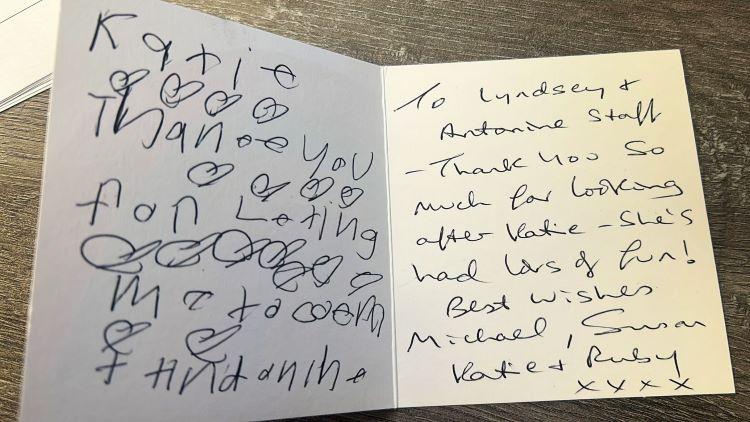 Katie
Thanoe you
fon Leting
me to coem
t Andanine
To Lyndsey +
Antonine Staff
- Thank you so
much for looking
after Katie - She's
had lots of fun!
Best wishes
Michael, Susan
Katie + Ruby
xxxx